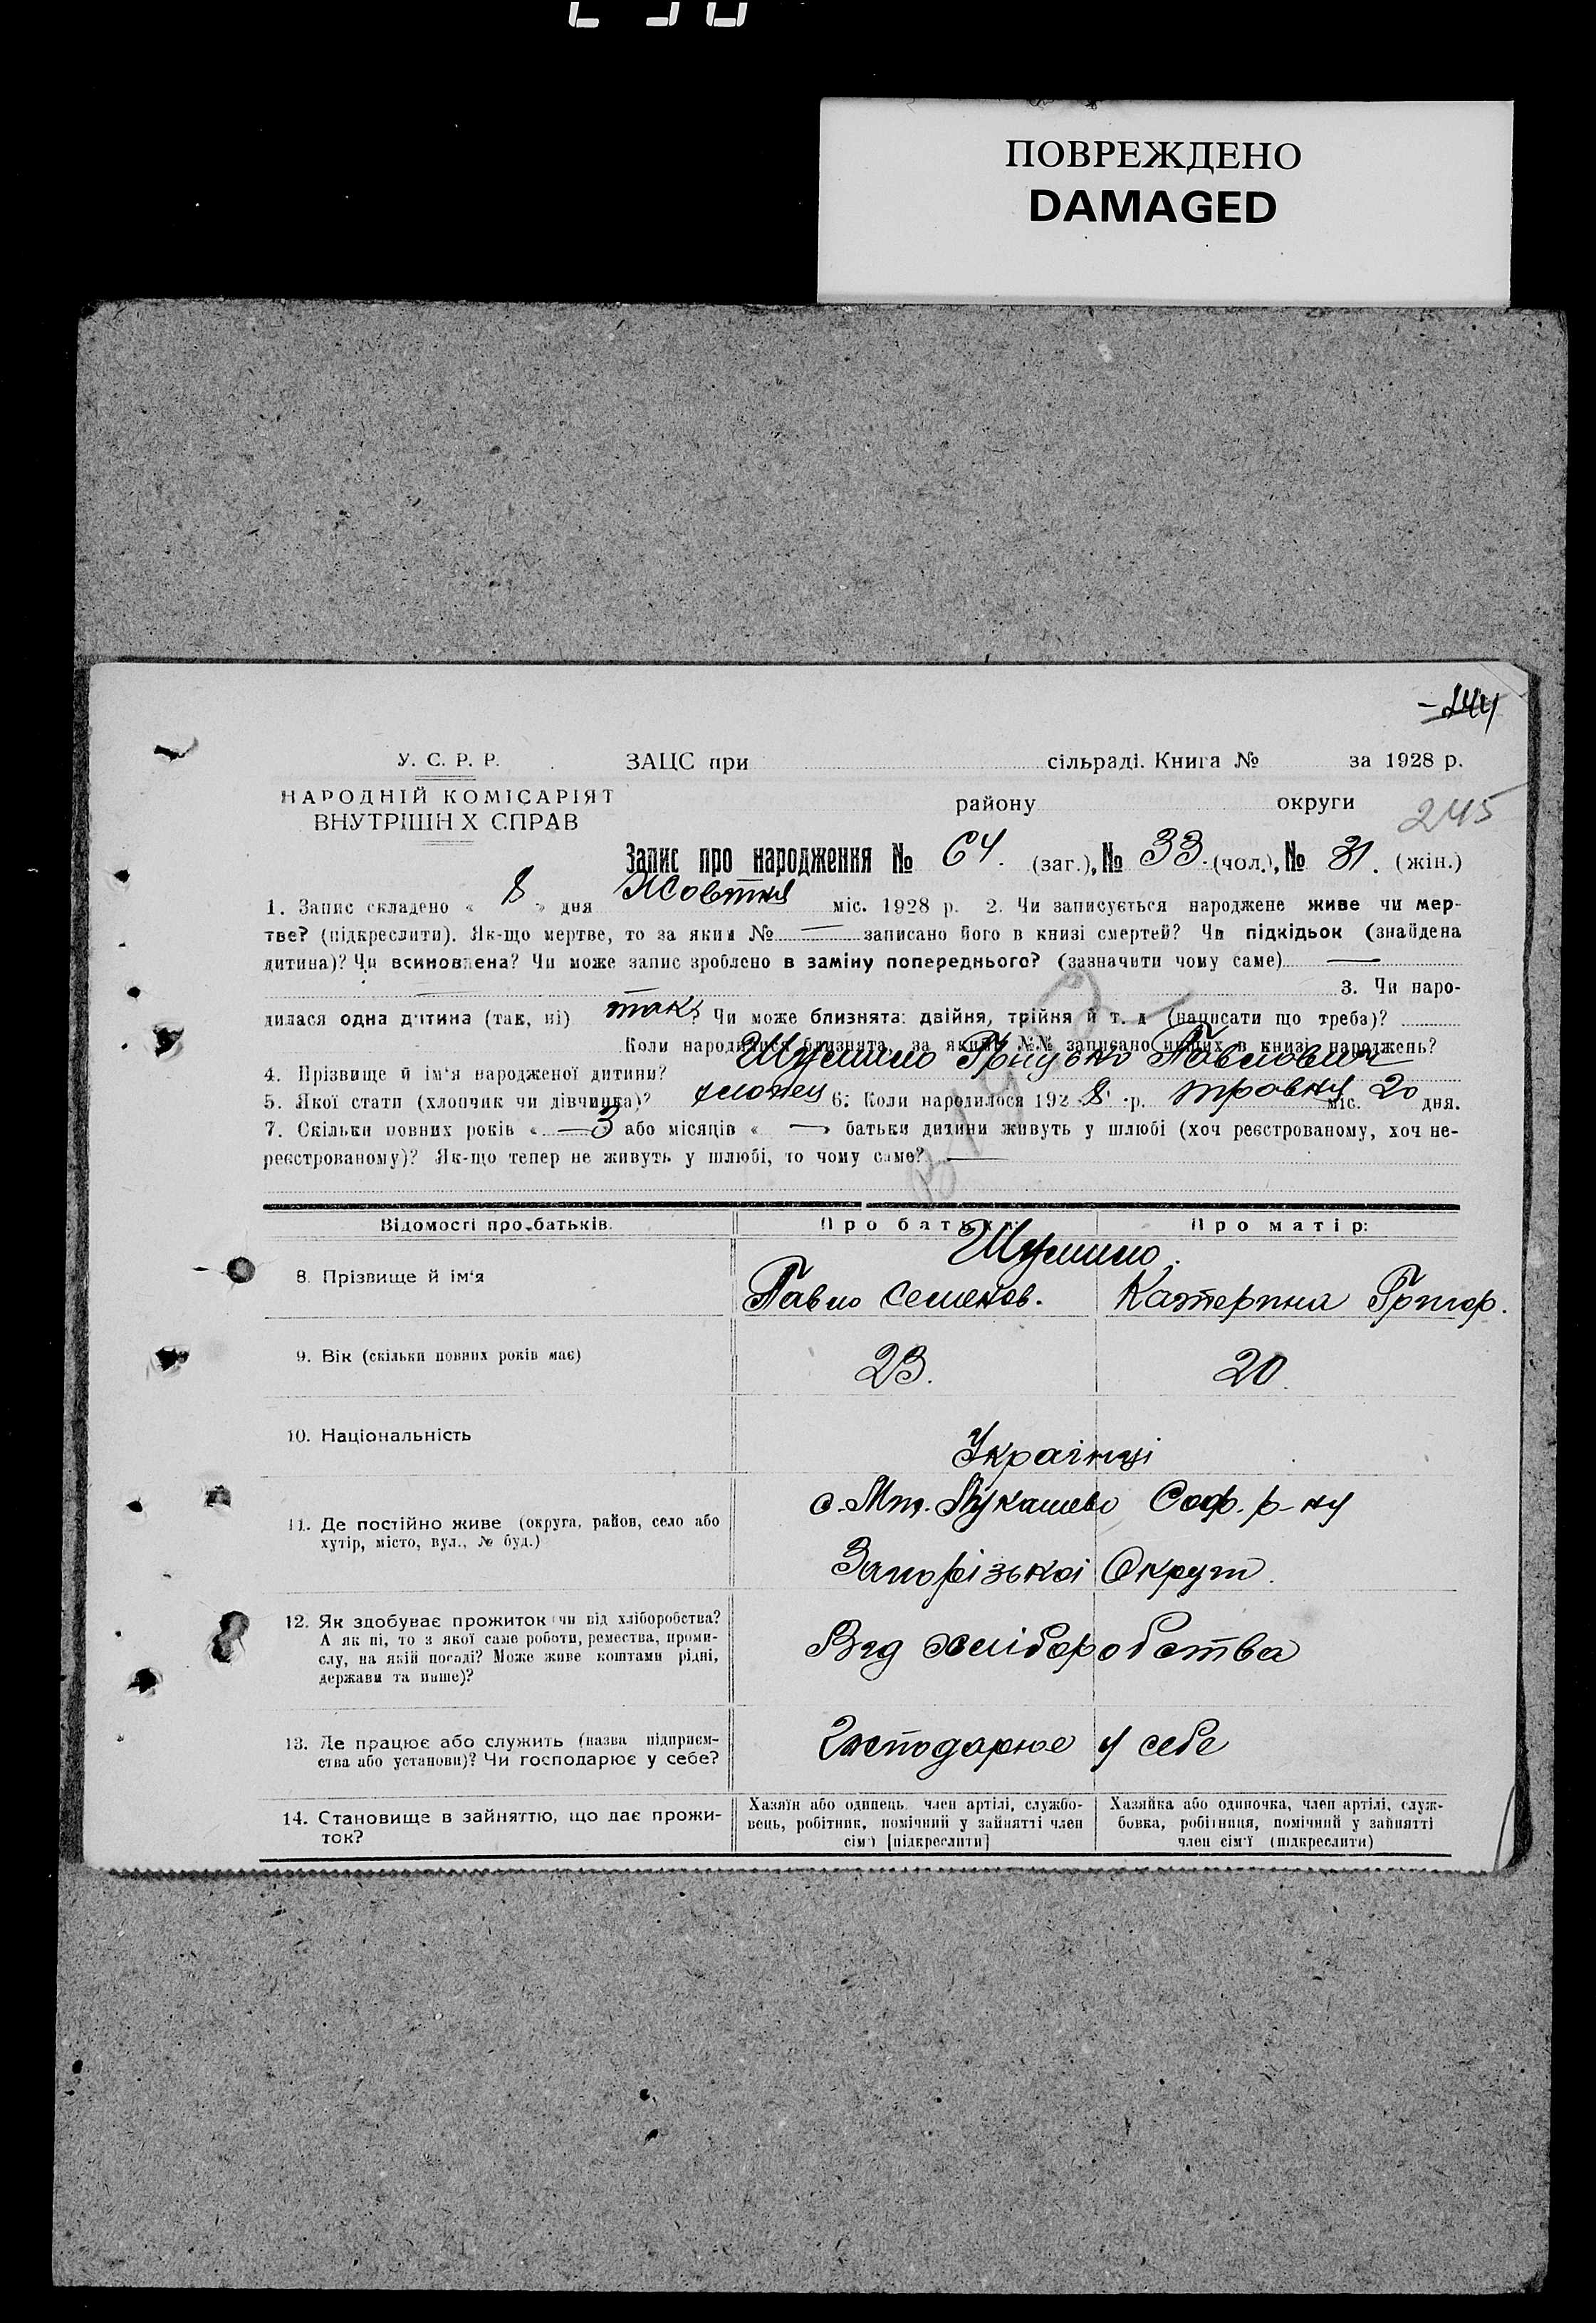 ПОВРЕЖДЕНО
DAMAGED
244
У. С. Р. Р.
ЗАЦС при сільраді. Книга № за 1928 р.
НАРОДНІЙ КОМІСАРІЯТ
ВНУТРІШН Х СПРАВ
району округи 245
Запис про народження № 64. (заг.), № 33. (чол.), № 31. (жін.)
1. Запис складено « 8 » дня Жовтня міс. 1928 р. 2. Чи записується народжене живе чи мер-
тве? (підкреслити). Як-що мертве, то за яким № — записано його в книзі смертей? Чи підкідьок (знайдена
дитина)? Чи всиновлена? Чи може запис зроблено в заміну попереднього? (зазначити чому саме) —
— 3. Чи наро-
дилася одна дитина (так, ні) так ? Чи може близнята: двійня, трійня й т. д (написати що треба)?
Коли народилися близнята, за якими №№ записано инших в книзі народжень?
4. Прізвище й ім'я народженої дитини? Шумило Грицько Павлович
5. Якої стати (хлопчик чи дівчинка)? хлопец 6. Коли народилося 192 8 р. травня міс. 20 дня.
7. Скільки повних років « — 3 » або місяців « — » батьки дитини живуть у шлюбі (хоч реєстрованому, хоч не-
реєстрованому)? Як-що тепер не живуть у шлюбі, то чому саме? —
Відомості про батьків. Про батька: Про матір:
Шумило.
8. Прізвище й ім'я Павло Семенов. Катерина Григор.
9. Вік (скільки повних років має) 23. 20.
10. Національність Українці
с. Мт. Лукашево Соф. р-ну
11. Де постійно живе (округа, район, село або
хутір, місто, вул., № буд.)
Запорізької Округи.
12. Як здобуває прожиток (чи від хліборобства?
А як ні, то з якої саме роботи, ремества, проми-
слу, на якій посаді? Може живе коштами рідні,
держави та инше)?
Від хліборобства
13. Де працює або служить (назва підприєм-
ства або установи)? Чи господарює у себе?
Господарює у себе
14. Становище в зайняттю, що дає прожи-
ток?
Хазяїн або одинець, член артілі, службо-
вець, робітник, помічний у зайнятті член
сім'ї [підкреслити]
Хазяйка або одиночка, член артілі, служ-
бовка, робітниця, помічний у зайнятті
член сім'ї (підкреслити)